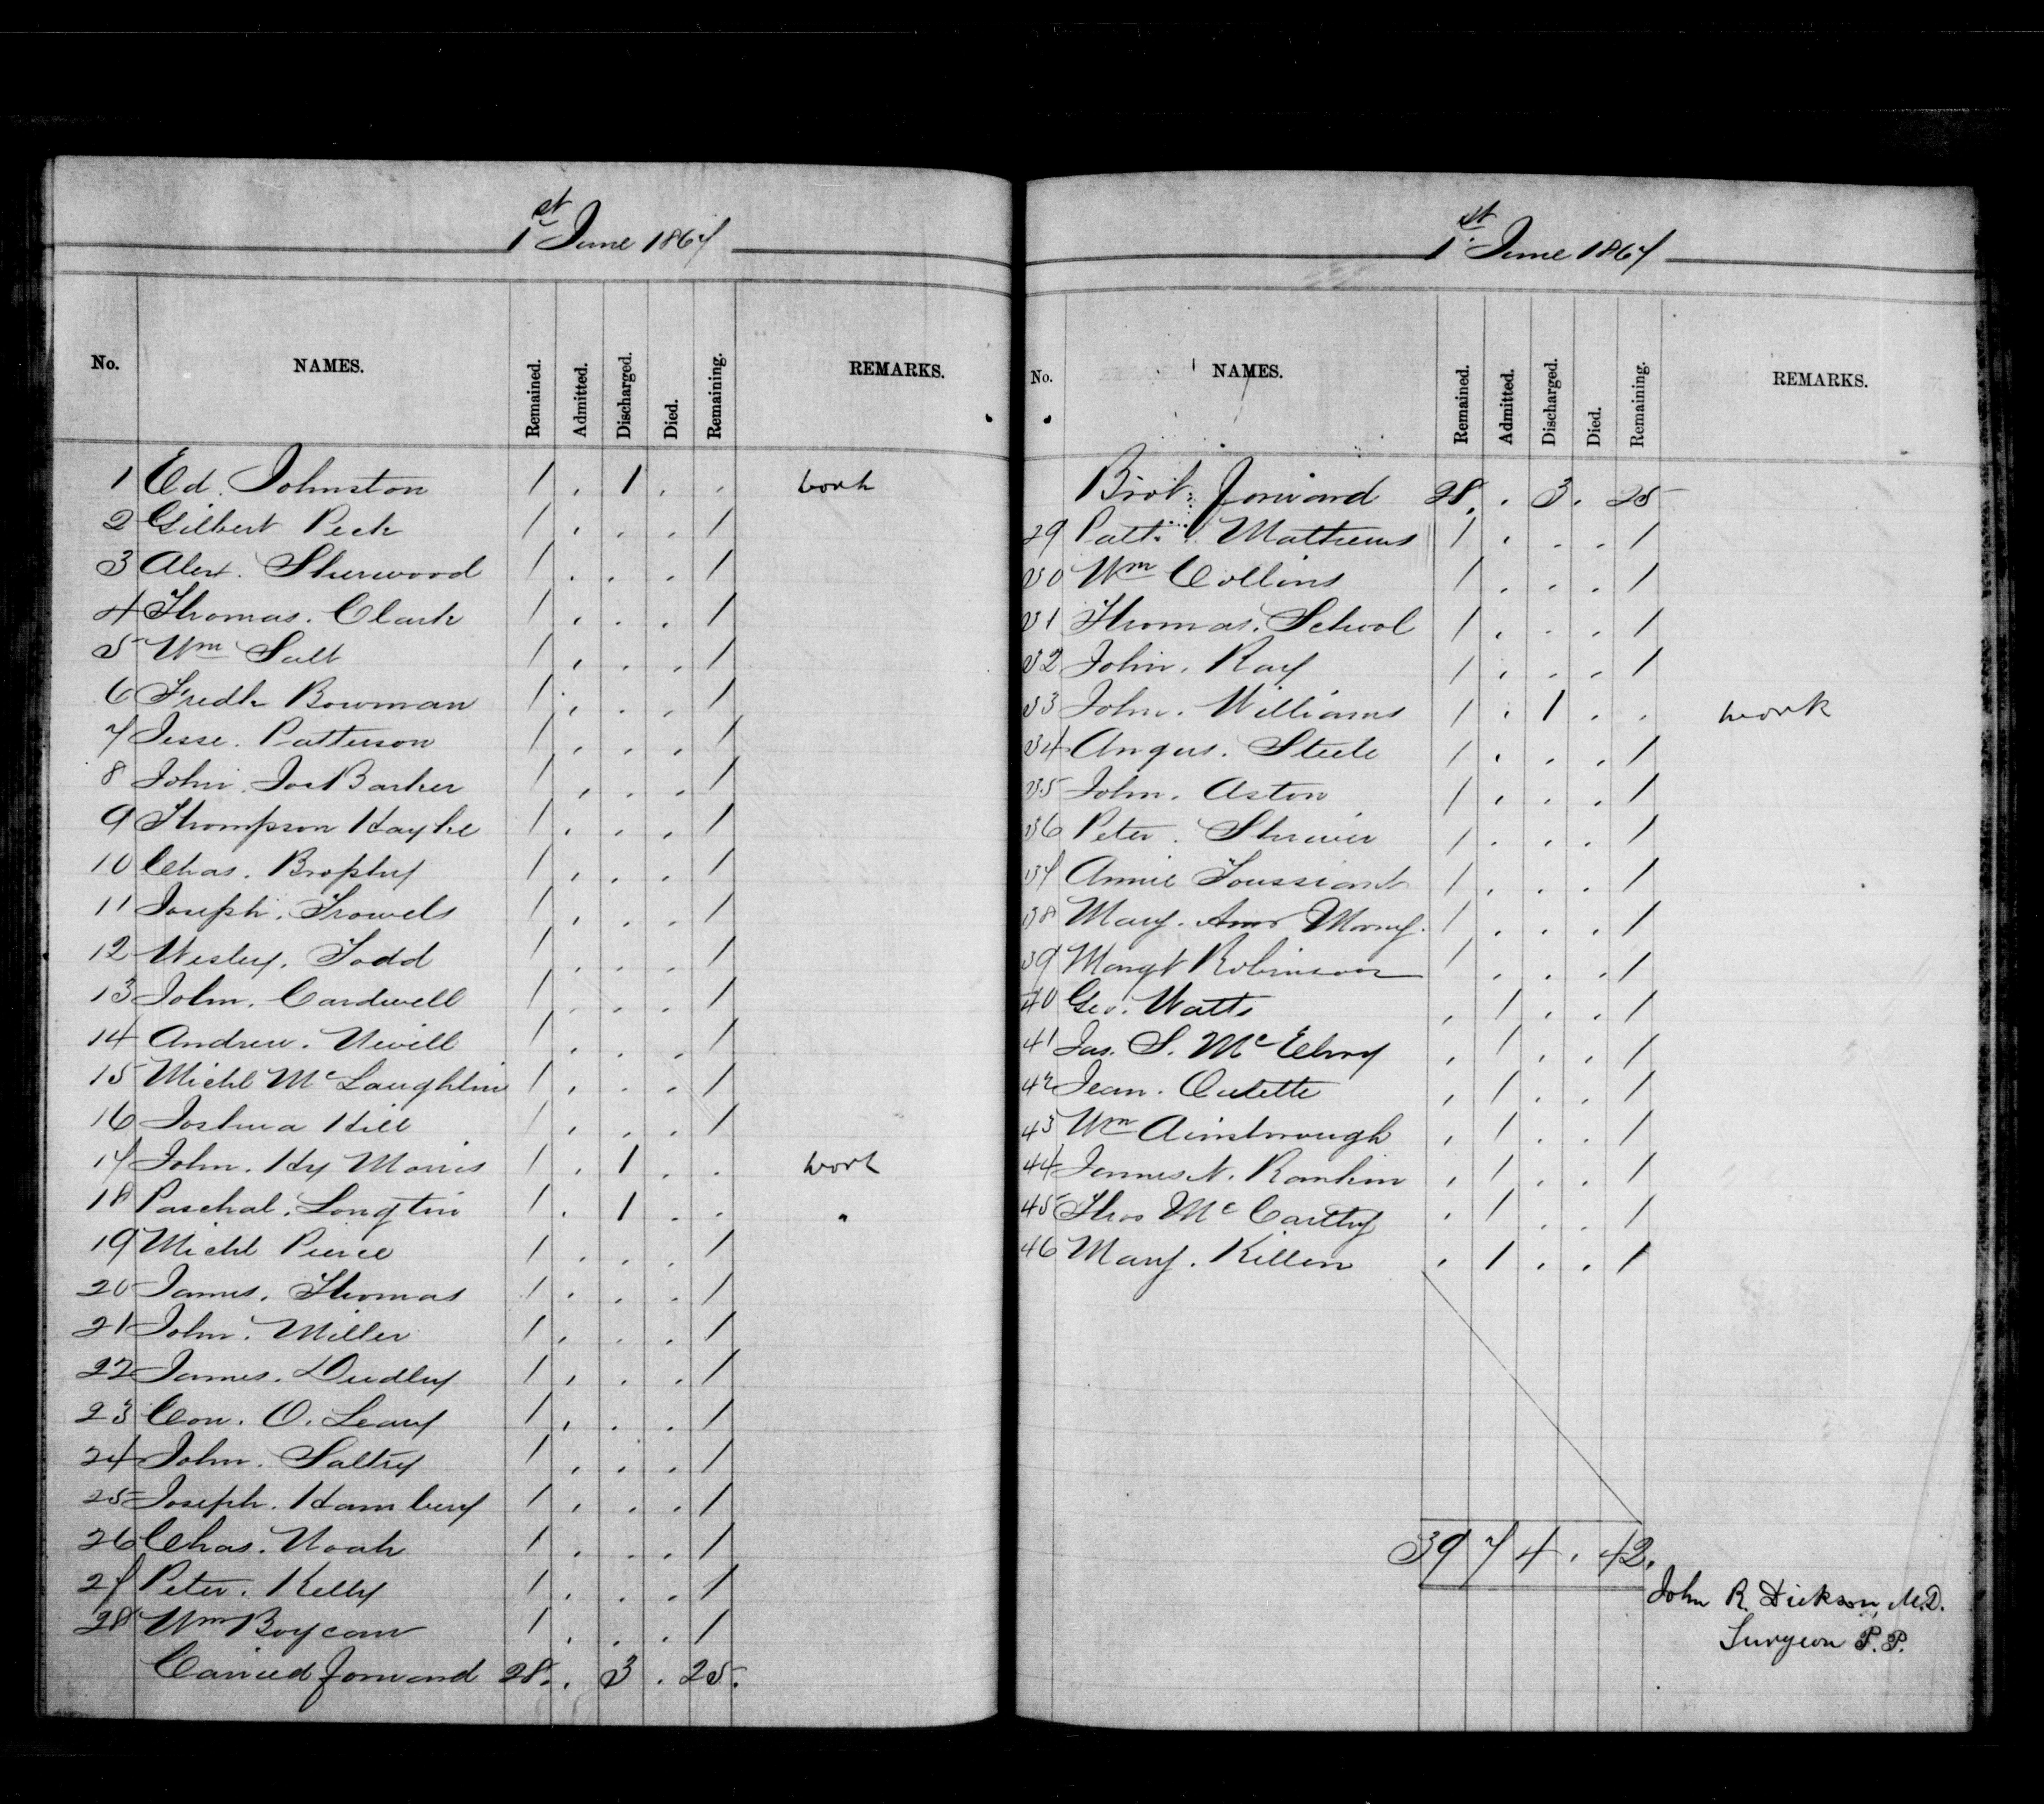 1st June 1867
No. NAMES. Remained. Admitted. Discharged. Died. Remaining. REMARKS.
1 Ed. Johnston 1 . 1 . . work
2 Gilbert Peck 1 . . . 1
3 Alex. Sherwood 1 . . . 1
4 Thomas. Clark 1 . . . 1
5 Wm Salt 1 . . . 1
6 Fredk Bowman 1 . . . 1
7 Jesse. Patterson 1 . . . 1
8 John. Jos Barker 1 . . . 1
9 Thompson 1 . . . 1
10 Chas. Brophy 1 . . . 1
11 Joseph. Trowels 1 . . . 1
12 Wesley. Todd 1 . . . 1
13 John. Cardwell 1 . . . 1
14 Andrew. Nevill 1 . . . 1
15 Michl McLaughlin 1 . . . 1
16 Joshua Hill 1 . . . 1
17 John. Hy Morris 1 . 1 . . work
18 Paschal. Longtin 1 . 1 . . "
19 Michl Pierce 1 . . . 1
20 James. Thomas 1 . . . 1
21 John. Miller 1 . . . 1
22 James. Dudley 1 . . . 1
23 Con. O. Leary 1 . . . 1
24 John. Saltry 1 . . . 1
25 Joseph. Hambury 1 . . . 1
26 Chas. Noah 1 . . . 1
27 Peter. Kelly 1 . . . 1
28 Wm 1 . . . 1
Carried forward 28 . 3 . 25.
1st June 1867
No. NAMES. Remained. Admitted. Discharged. Died. Remaining. REMARKS.
Brot. forward 28 . 3 . 25
29 Patt. Mathews 1 . . . 1
30 Wm Collins 1 . . . 1
31 Thomas. School 1 . . . 1
32 John. Ray 1 . . . 1
33 John. Williams 1 . 1 . . work
34 Angus. Steele 1 . . . 1
35 John. Aston 1 . . . 1
36 Peter. 1 . . . 1
37 Annie Toussiant 1 . . . 1
38 Mary. Ann 1 . . . 1
39 Margt Robinson 1 . . . 1
40 Geo. Watts . 1 . . 1
41 Jas. S. McElroy . 1 . . 1
42 Jean. Oulette . 1 . . 1
43 Wm Ainsbrough . 1 . . 1
44 James N. Rankin . 1 . . 1
45 Thos McCarthy . 1 . . 1
46 Mary. Killen . 1 . . 1
39 7 4 . 42.
John R. Dickson, M.D.
Surgeon P.P.